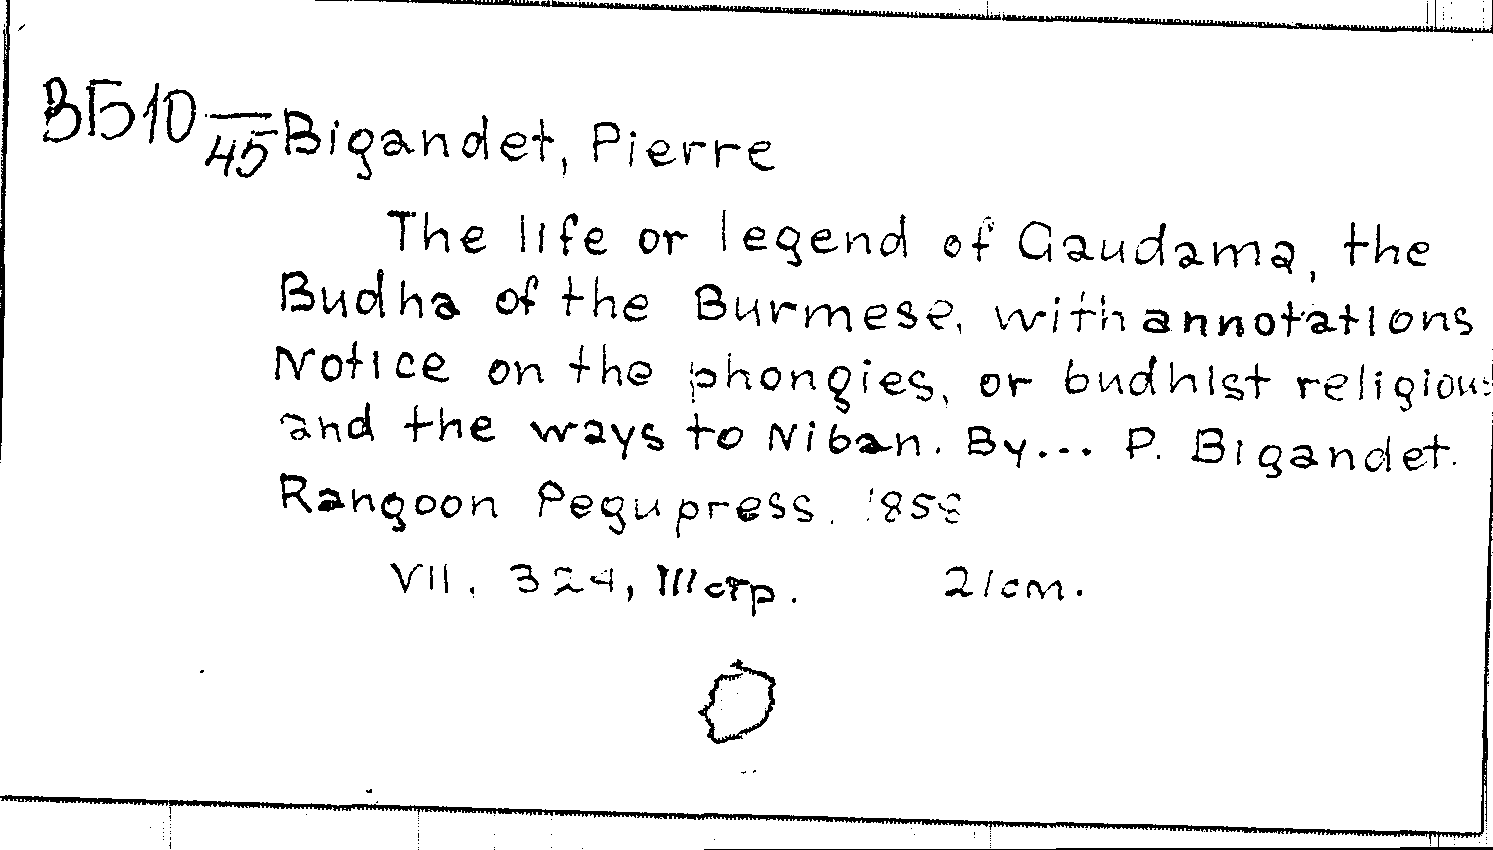 ВБ10/45 Bigandet, Pierre
The life or legend of Gaudama, the
Budha of the Burmese, with annotations
Notice on the phongies, or budhist religious
and the ways to Niban. By... P. Bigandet.
Rangoon Pegu press.
VII. 324, III стр. 21cm.